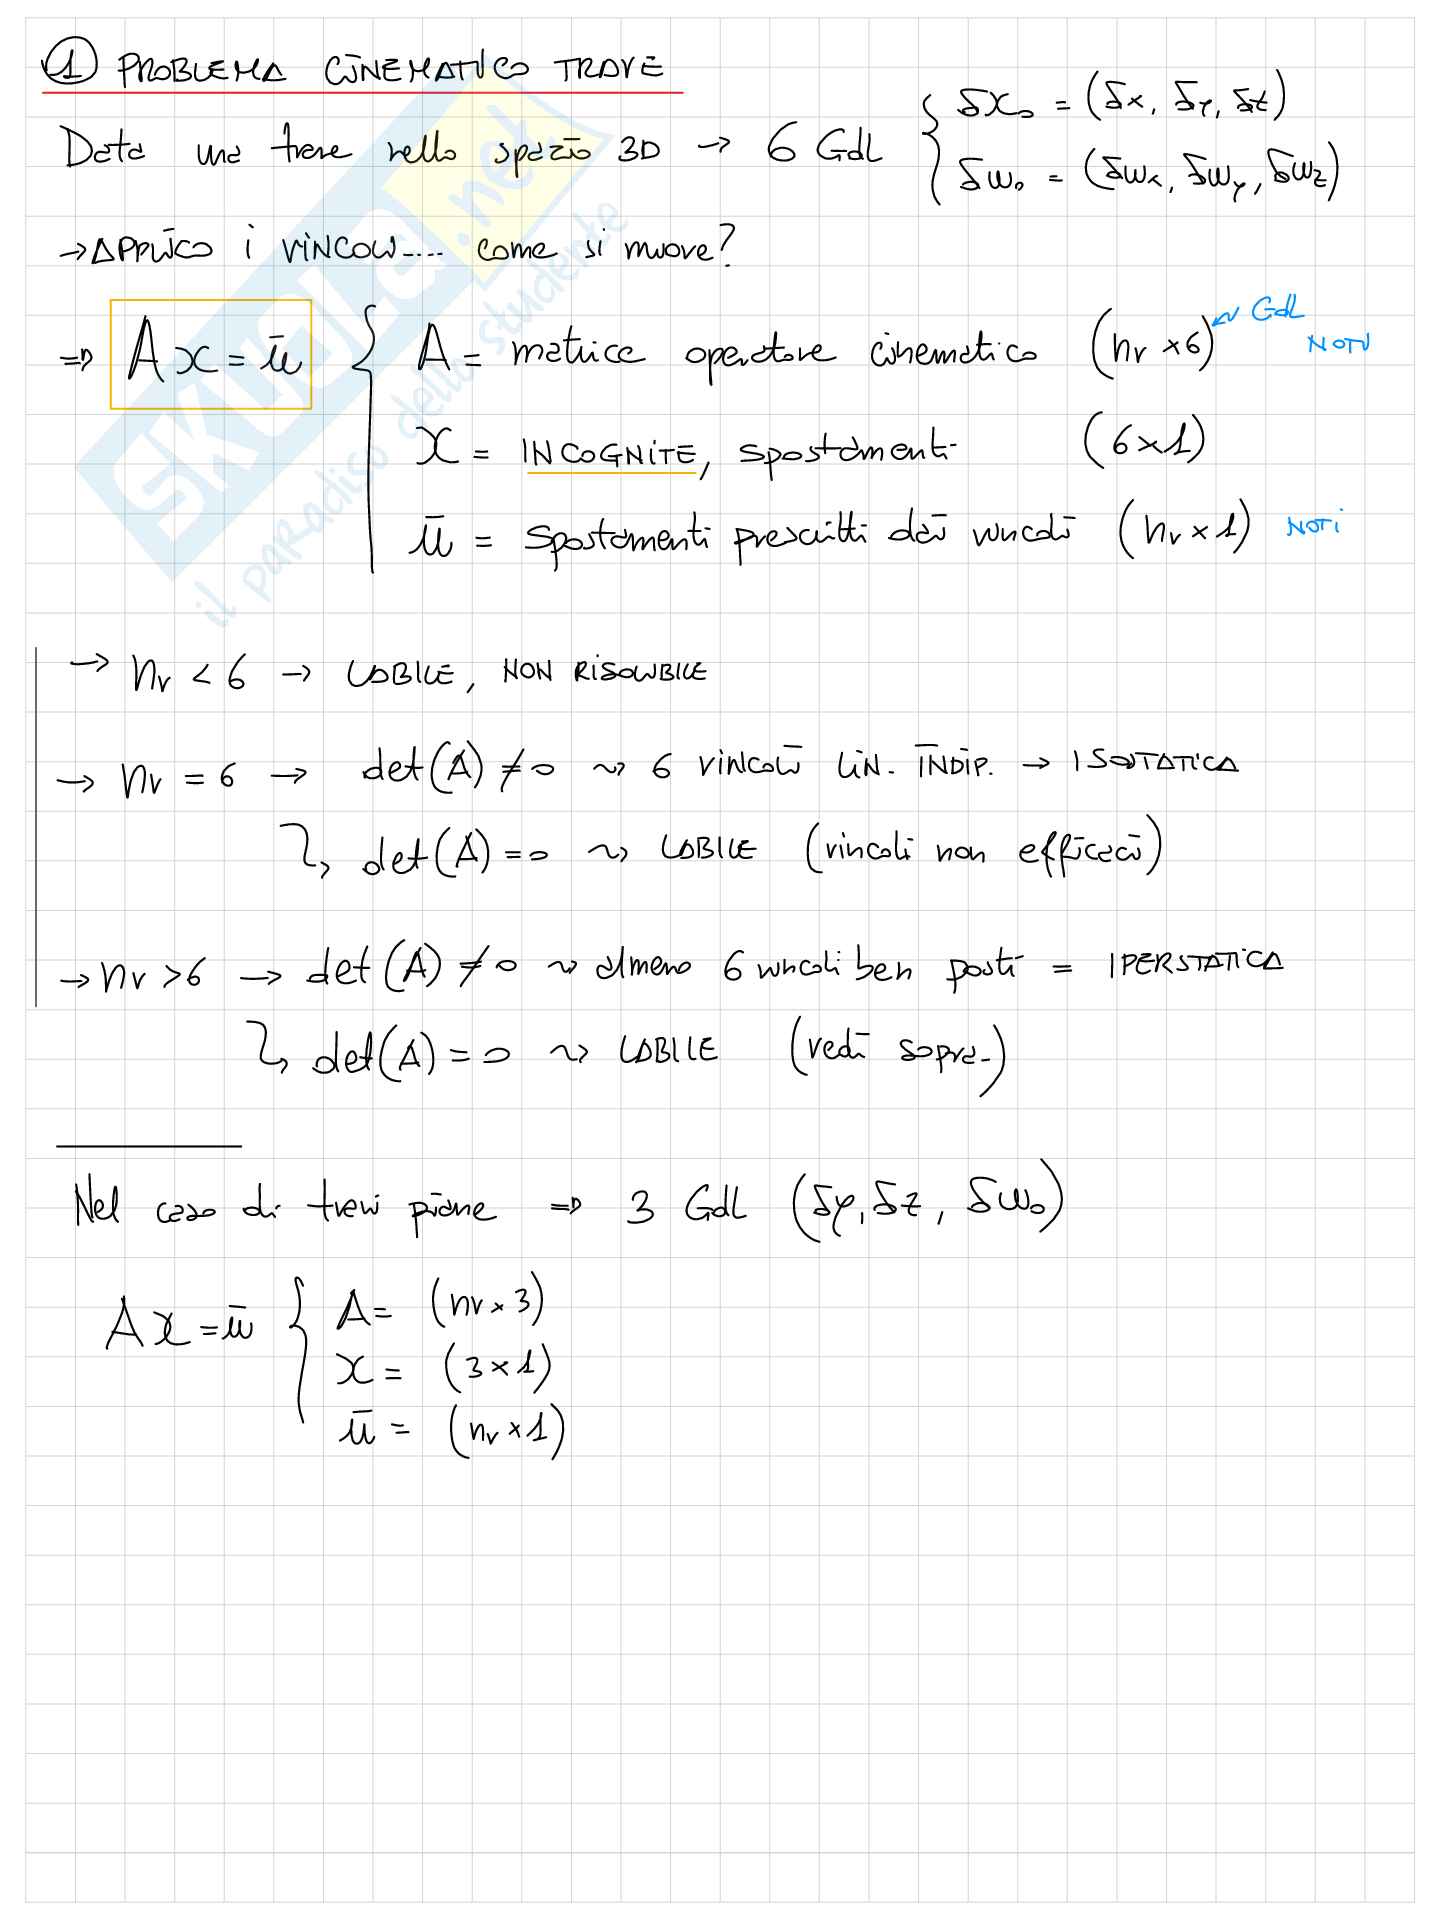 ① PROBLEMA CINEMATICO TRAVE
Data una trave nello spazio 3D → 6 GdL { δx₀ = (δx, δy, δz)
δw₀ = (δwx, δwy, δwz)
→ APPLICO i VINCOLI.... come si muove?
⇒ A x = ū { A = matrice operatore cinematico (nv × 6) GdL NOTI
x = INCOGNITE, spostamenti (6 × 1)
ū = spostamenti prescritti dai vincoli (nv × 1) NOTI
→ nv < 6 → LABILE, NON RISOLVIBILE
→ nv = 6 → det(A) ≠ 0 ⤳ 6 vincoli LIN. INDIP. → ISOSTATICA
↳ det(A) = 0 ⤳ LABILE (vincoli non efficaci)
→ nv > 6 → det(A) ≠ 0 ⤳ almeno 6 vincoli ben posti = IPERSTATICA
↳ det(A) = 0 ⤳ LABILE (vedi sopra)
Nel caso di travi piane ⇒ 3 GdL (δy, δz, δw₀)
A x = ū { A = (nv × 3)
x = (3 × 1)
ū = (nv × 1)
SKUOLA.net
il paradiso dello studente